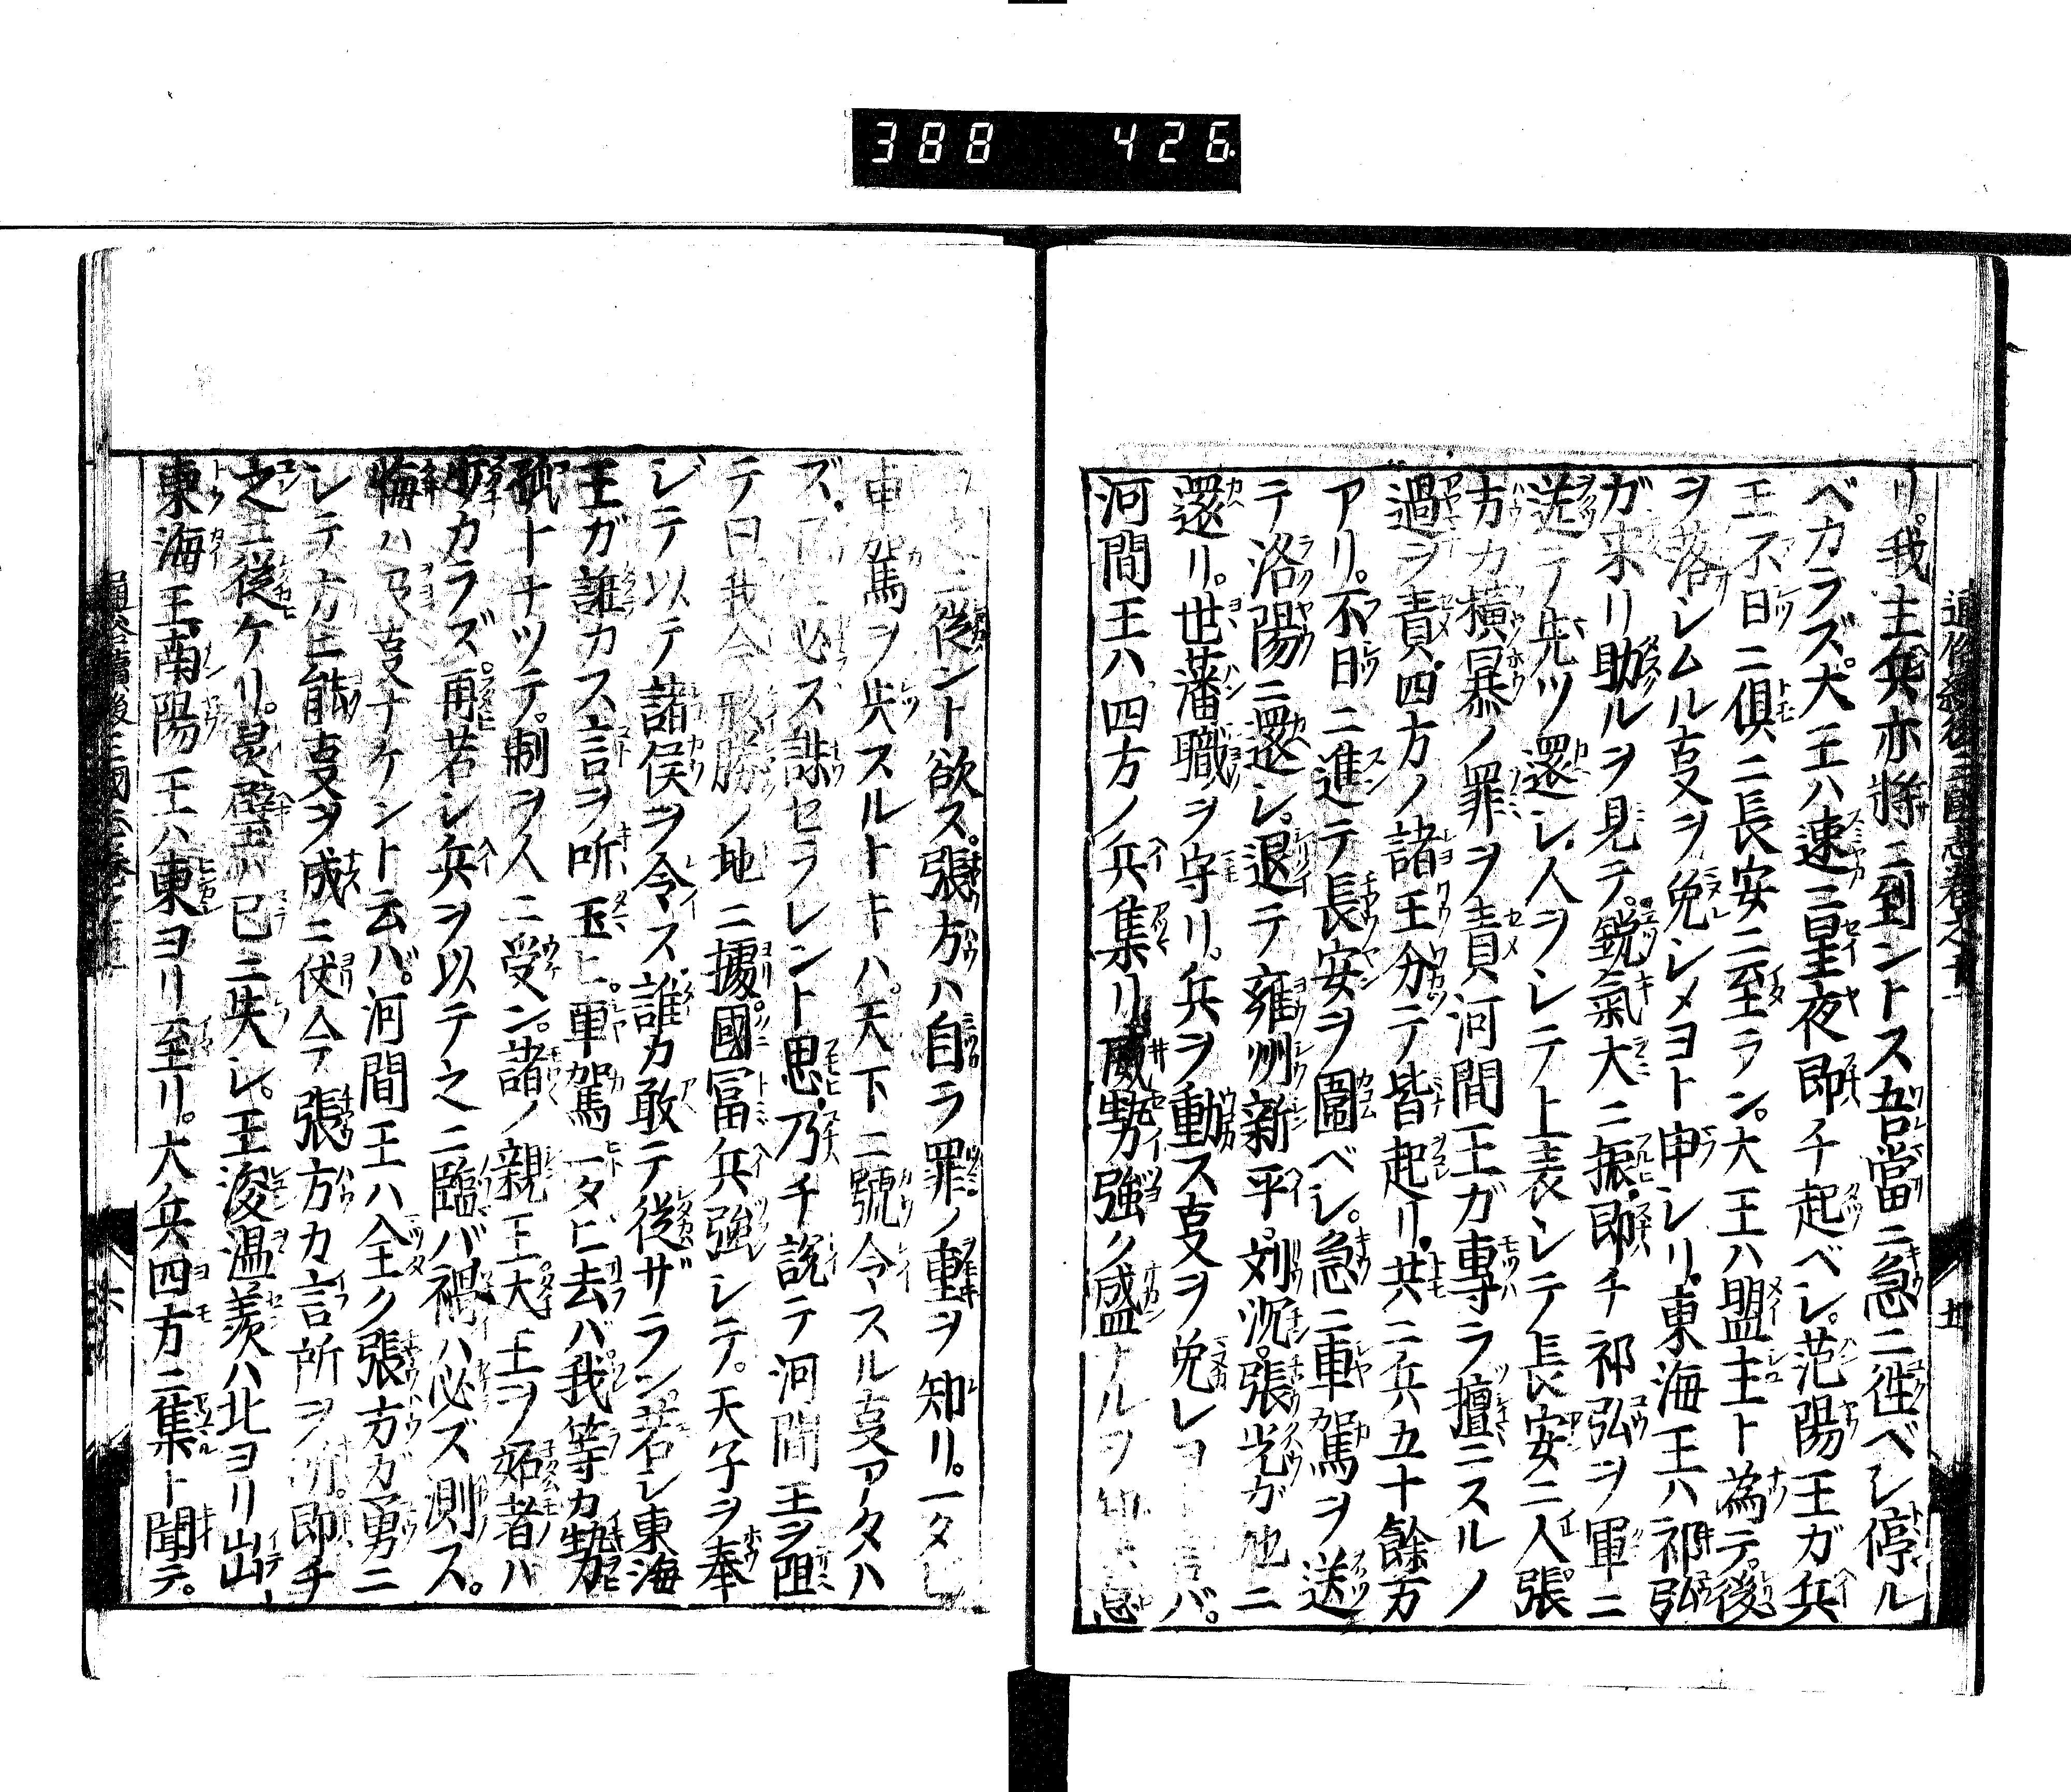 388 426
リ。我主兵亦將ニ到ントス吾當ニ急ニ徃ベシ停ル
ベカラズ。大王ハ速ニ星夜即チ起ベシ。范陽王ガ兵
王不日ニ俱ニ長安ニ至ラン。大王ハ盟主ト為テ。後
ヲ落シムル𫝆ヲ免シメヨト申シリ。東海王ハ祁弘
ガ来リ助ルヲ見テ。銳氣大ニ振。即チ祁弘ヲ軍ニ
送テ先ツ還シ。人ヲシテ上表シテ長安ニ入張
方カ橫暴ノ罪ヲ責河間王ガ專ラ擅ニスルノ
過ヲ責。四方ノ諸王分テ皆起リ。共ニ兵五十餘万
アリ。不日ニ進テ長安ヲ圍ベシ。急ニ車駕ヲ送
テ洛陽ニ還シ。退テ雍州新平。刘沉。張光ガ地ニ
還リ。世藩職ヲ守リ。兵ヲ動ス𫝆ヲ免レヨ バ。
河間王ハ四方ノ兵集リ威勢強ク盛ナルヲ
ニ從ント欲ス。張方ハ自ラ罪ノ重ヲ知リ。一タビ
車駕ヲ失スルトキハ。天下ニ號令スル𫝆アタハ
ズ。 必ス誅セラレント思。乃チ説テ河間王ヲ阻
テ曰我今形勝ノ地ニ據。國冨兵強シテ。天子ヲ奉
ジテ以テ諸侯ヲ令ス。誰カ敢テ從ザラン若シ東海
王ガ誰カス言ヲ听玉ヒ。車駕一タビ去バ。我等カ勢
孤トナツテ。制ヲ人ニ受ン。諸ノ親王大王ヲ妬者ハ
少カラズ。再若シ兵ヲ以テ之ニ臨バ禍ハ必ズ測ス。
悔ハ及𫝆ナケント云バ。河間王ハ全ク張方ガ勇ニ
シテ方ニ能𫝆ヲ成ニ仗今テ張方カ言所ヲ听。即チ
之ニ從ケリ。灵壁ハ已ニ失シ。王浚温羨ハ北ヨリ出
東海王。南陽王ハ東ヨリ至リ。大兵四方ニ集ト聞テ。